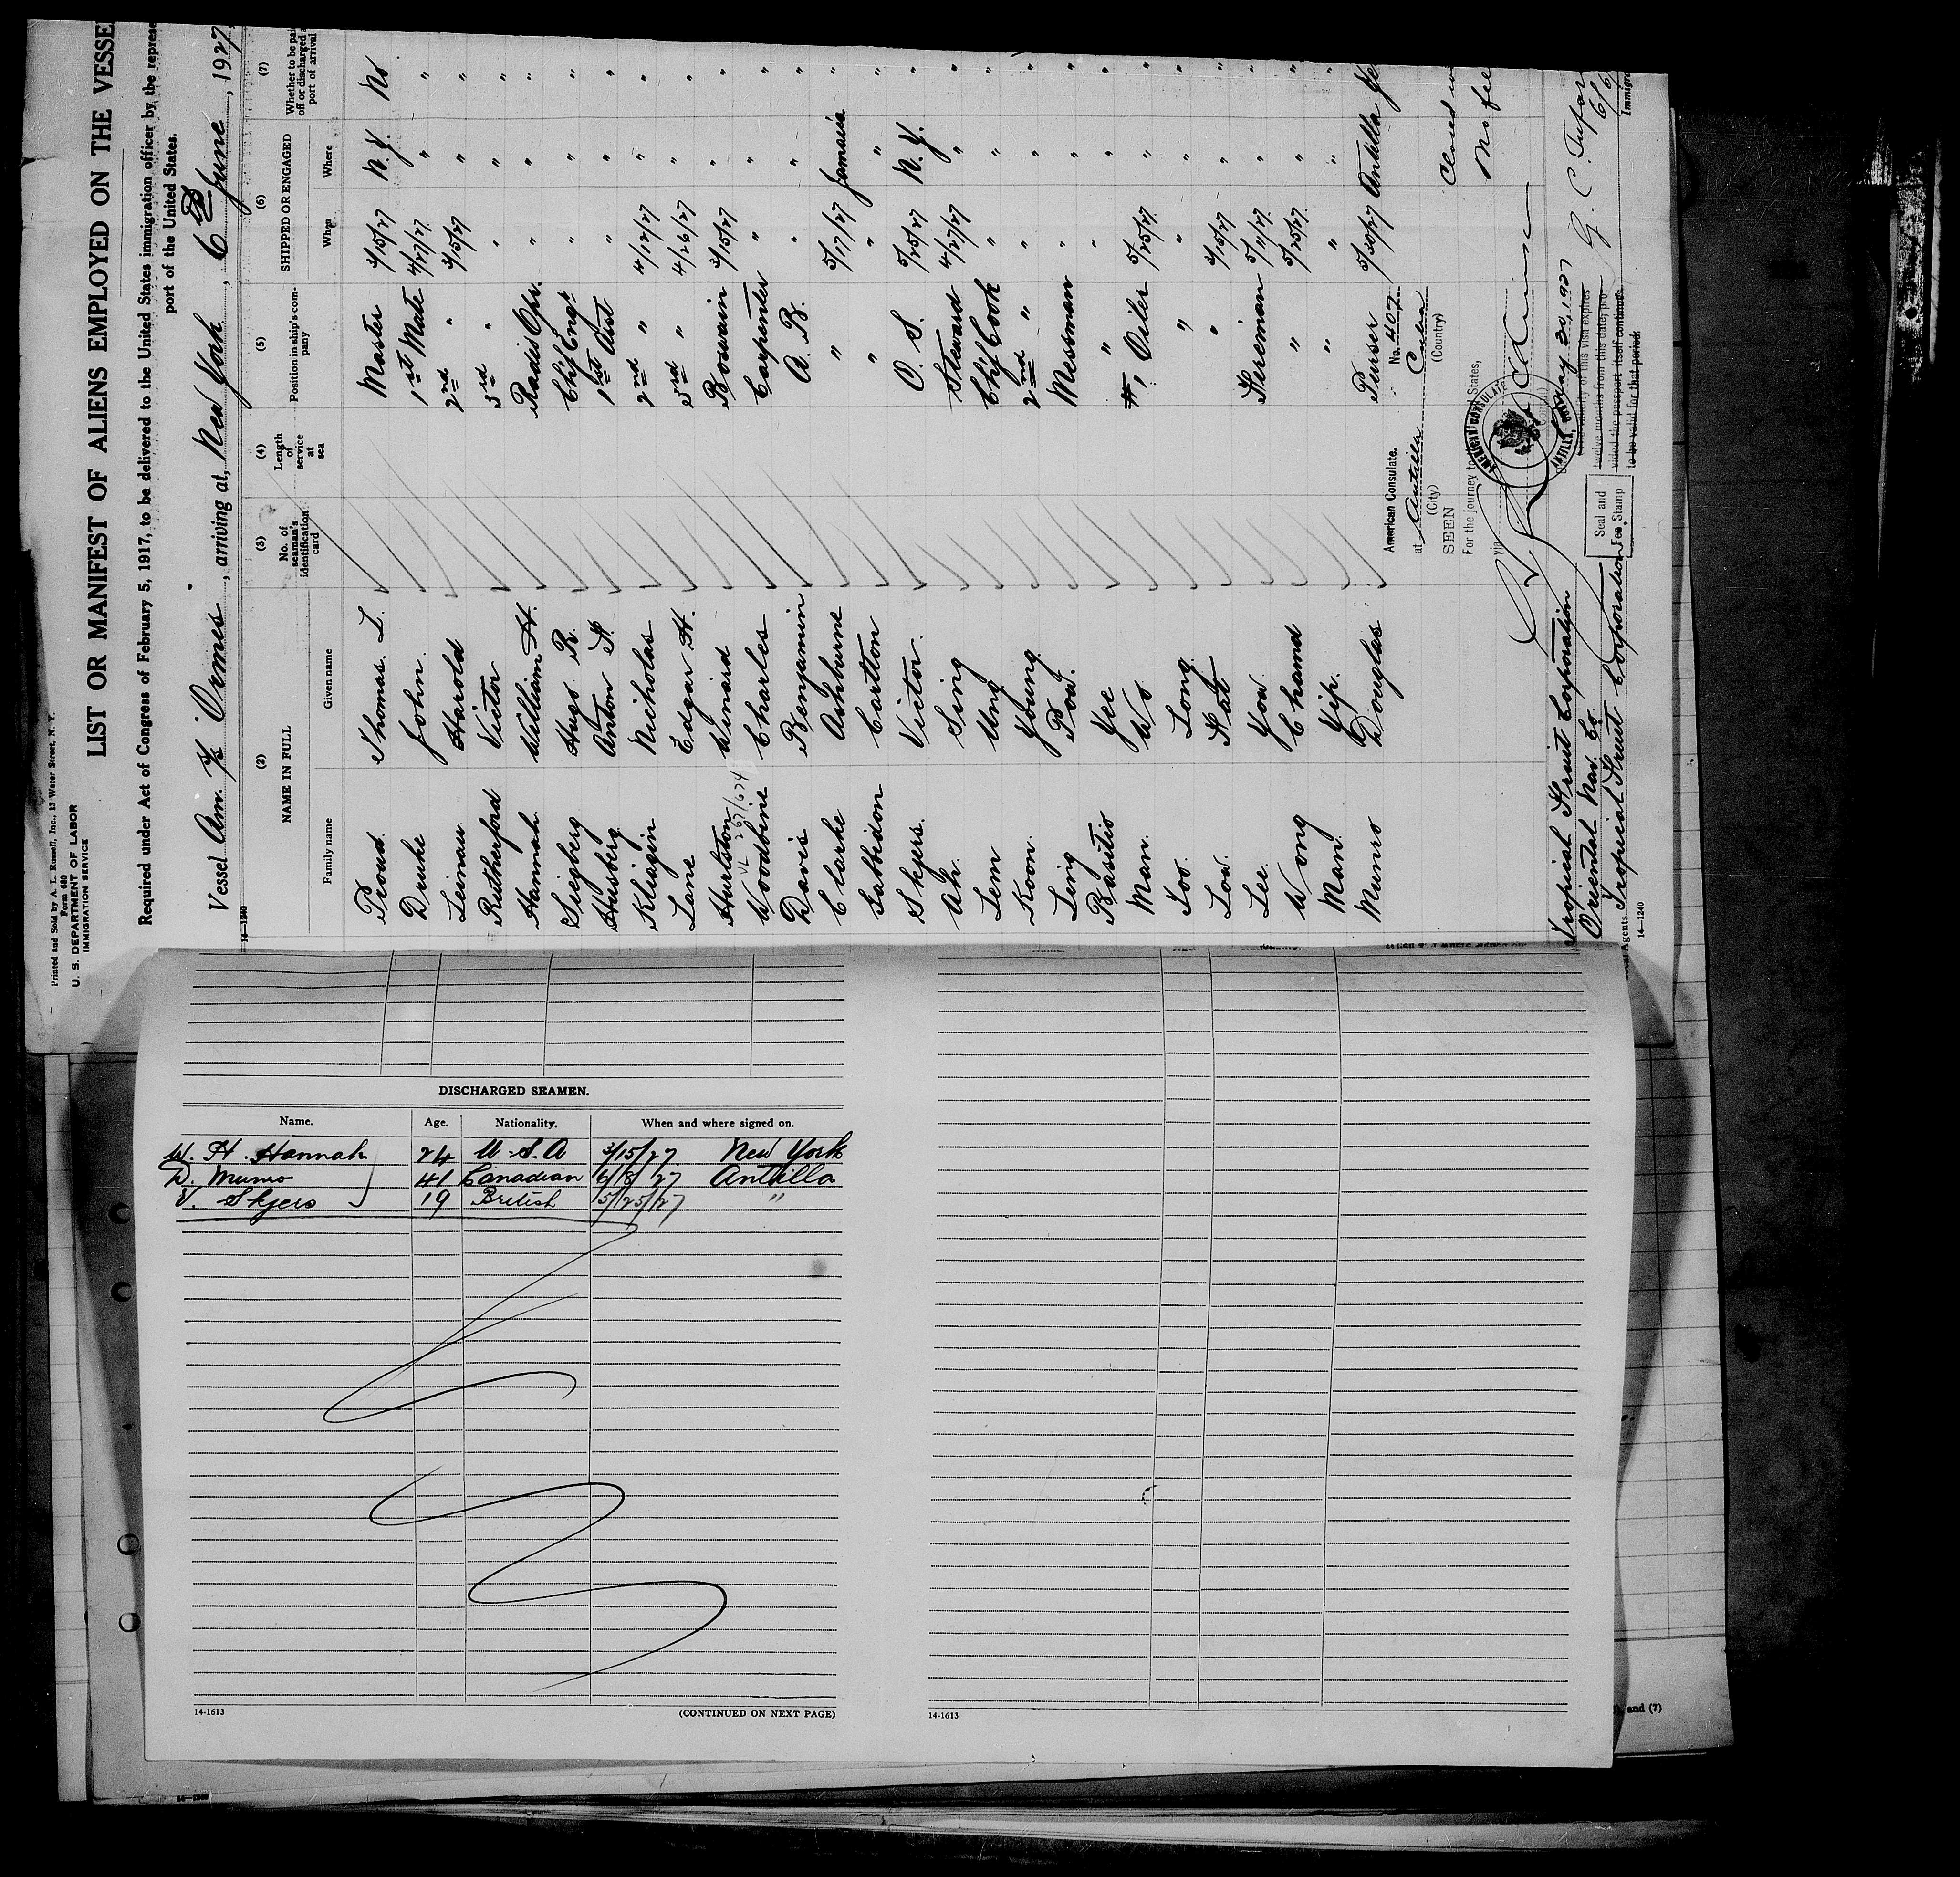 Printed and Sold by A. L. Russell, Inc., 13 Water Street, N. Y.
Form 680
U. S. DEPARTMENT OF LABOR
IMMIGRATION SERVICE
LIST OR MANIFEST OF ALIENS EMPLOYED ON THE VESSE
Required under Act of Congress of February 5, 1917, to be delivered to the United States immigration officer by the represe
port of the United States.
Vessel Am. Ormes, arriving at, New York, 6th June, 1927
14—1240
(2) (3) (4) (5) (6) (7)
NAME IN FULL No. of seaman's identification card Length of service at sea Position in ship's company SHIPPED OR ENGAGED Whether to be paid off or discharged at port of arrival
Family name Given name When Where
Proud Thomas L. Master 3/15/27 N. Y. No
Druke John 1st Mate 4/27/27 " "
Leinau Harold 2nd " 3/15/27 " "
Rutherford Victor 3rd " " " "
Hannah William H. Radio Opr. " " "
Siegberg Hugo R. Chf Engr " " "
Husberg Anton F. 1st Asst " " "
Kliagin Nicholas 2nd " 4/12/27 " "
Lane Edgar H. 3rd " 4/26/27 " "
Hurlston Winiard Boswain 3/15/27 " "
VL 267/674
Woodbine Charles Carpenter " " "
Davis Benjamin A. B. " " "
Clarke Ashburne " 5/17/27 Jamaica "
Carlton " " " "
Skjers Victor O. S. 5/25/27 N. Y. "
Ah Sing Steward 4/27/27 " "
Lem Ung Chf Cook " " "
Koon Young 2nd " " " "
Ling Pow Messman " " "
Basitio Yee " " " "
Man Wo Oiler 5/25/27 " "
Too Long " " " "
Low Fat " 3/15/27 " "
Lee You Fireman 5/11/27 " "
Wong Chamd " 5/25/27 " "
Man Yip " " " "
Munro Douglas Purser 5/30/27 Antilla
American Consulate. No. 407
at Antilla Cuba
(City) (Country)
SEEN
For the journey to the United States,
via
AMERICAN CONSULATE
ANTILLA, CUBA
May 30, 1927
The validity of this visa expires
twelve months from this date, pro-
vided the passport itself continues
to be valid for that period.
Seal and
Fee Stamp
Tropical Fruit Corporation
Oriental Nav. Co.
Tropical Fruit Corporation
Agents.
Immigra
14—1240
DISCHARGED SEAMEN.
Name. Age. Nationality. When and where signed on.
W. H. Hannah 24 U.S.A 3/15/27 New York
D. Munro 41 Canadian 6/8/27 Antilla
V. Skjers 19 British 5/25/27 "
14-1613 (CONTINUED ON NEXT PAGE)
14-1613
and (7)